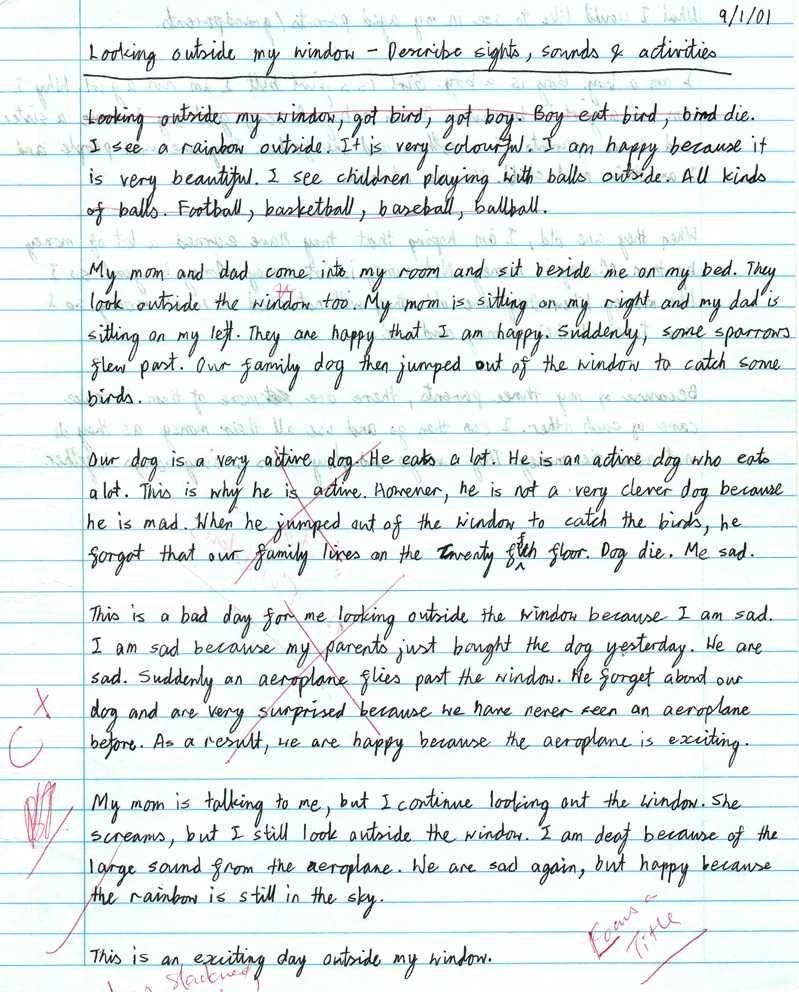 9/1/01
Looking outside my window - Describe sights, sounds & activities
Looking outside my window, got bird, got boy. Boy eat bird, bird die.
I see a rainbow outside. It is very colourful. I am happy because it
is very beautiful. I see children playing with balls outside. All kinds
of balls. Football, basketball, baseball, ballball.
My mom and dad come into my room and sit beside me on my bed. They
look outside the window too. My mom is sitting on my right and my dad is
sitting on my left. They are happy that I am happy. Suddenly, some sparrows
flew past. Our family dog then jumped out of the window to catch some
birds.
Our dog is a very active dog. He eats a lot. He is an active dog who eats
a lot. This is why he is active. However, he is not a very clever dog because
he is mad. When he jumped out of the window to catch the birds, he
forgot that our family lives on the twenty fifth floor. Dog die. Me sad.
This is a bad day for me looking outside the window because I am sad.
I am sad because my parents just bought the dog yesterday. We are
sad. Suddenly an aeroplane flies past the window. We forget about our
dog and are very surprised because we have never seen an aeroplane
before. As a result, we are happy because the aeroplane is exciting.
My mom is talking to me, but I continue looking out the window. She
screams, but I still look outside the window. I am deaf because of the
large sound from the aeroplane. We are sad again, but happy because
the rainbow is still in the sky.
Focus
Title
This is an exciting day outside my window.